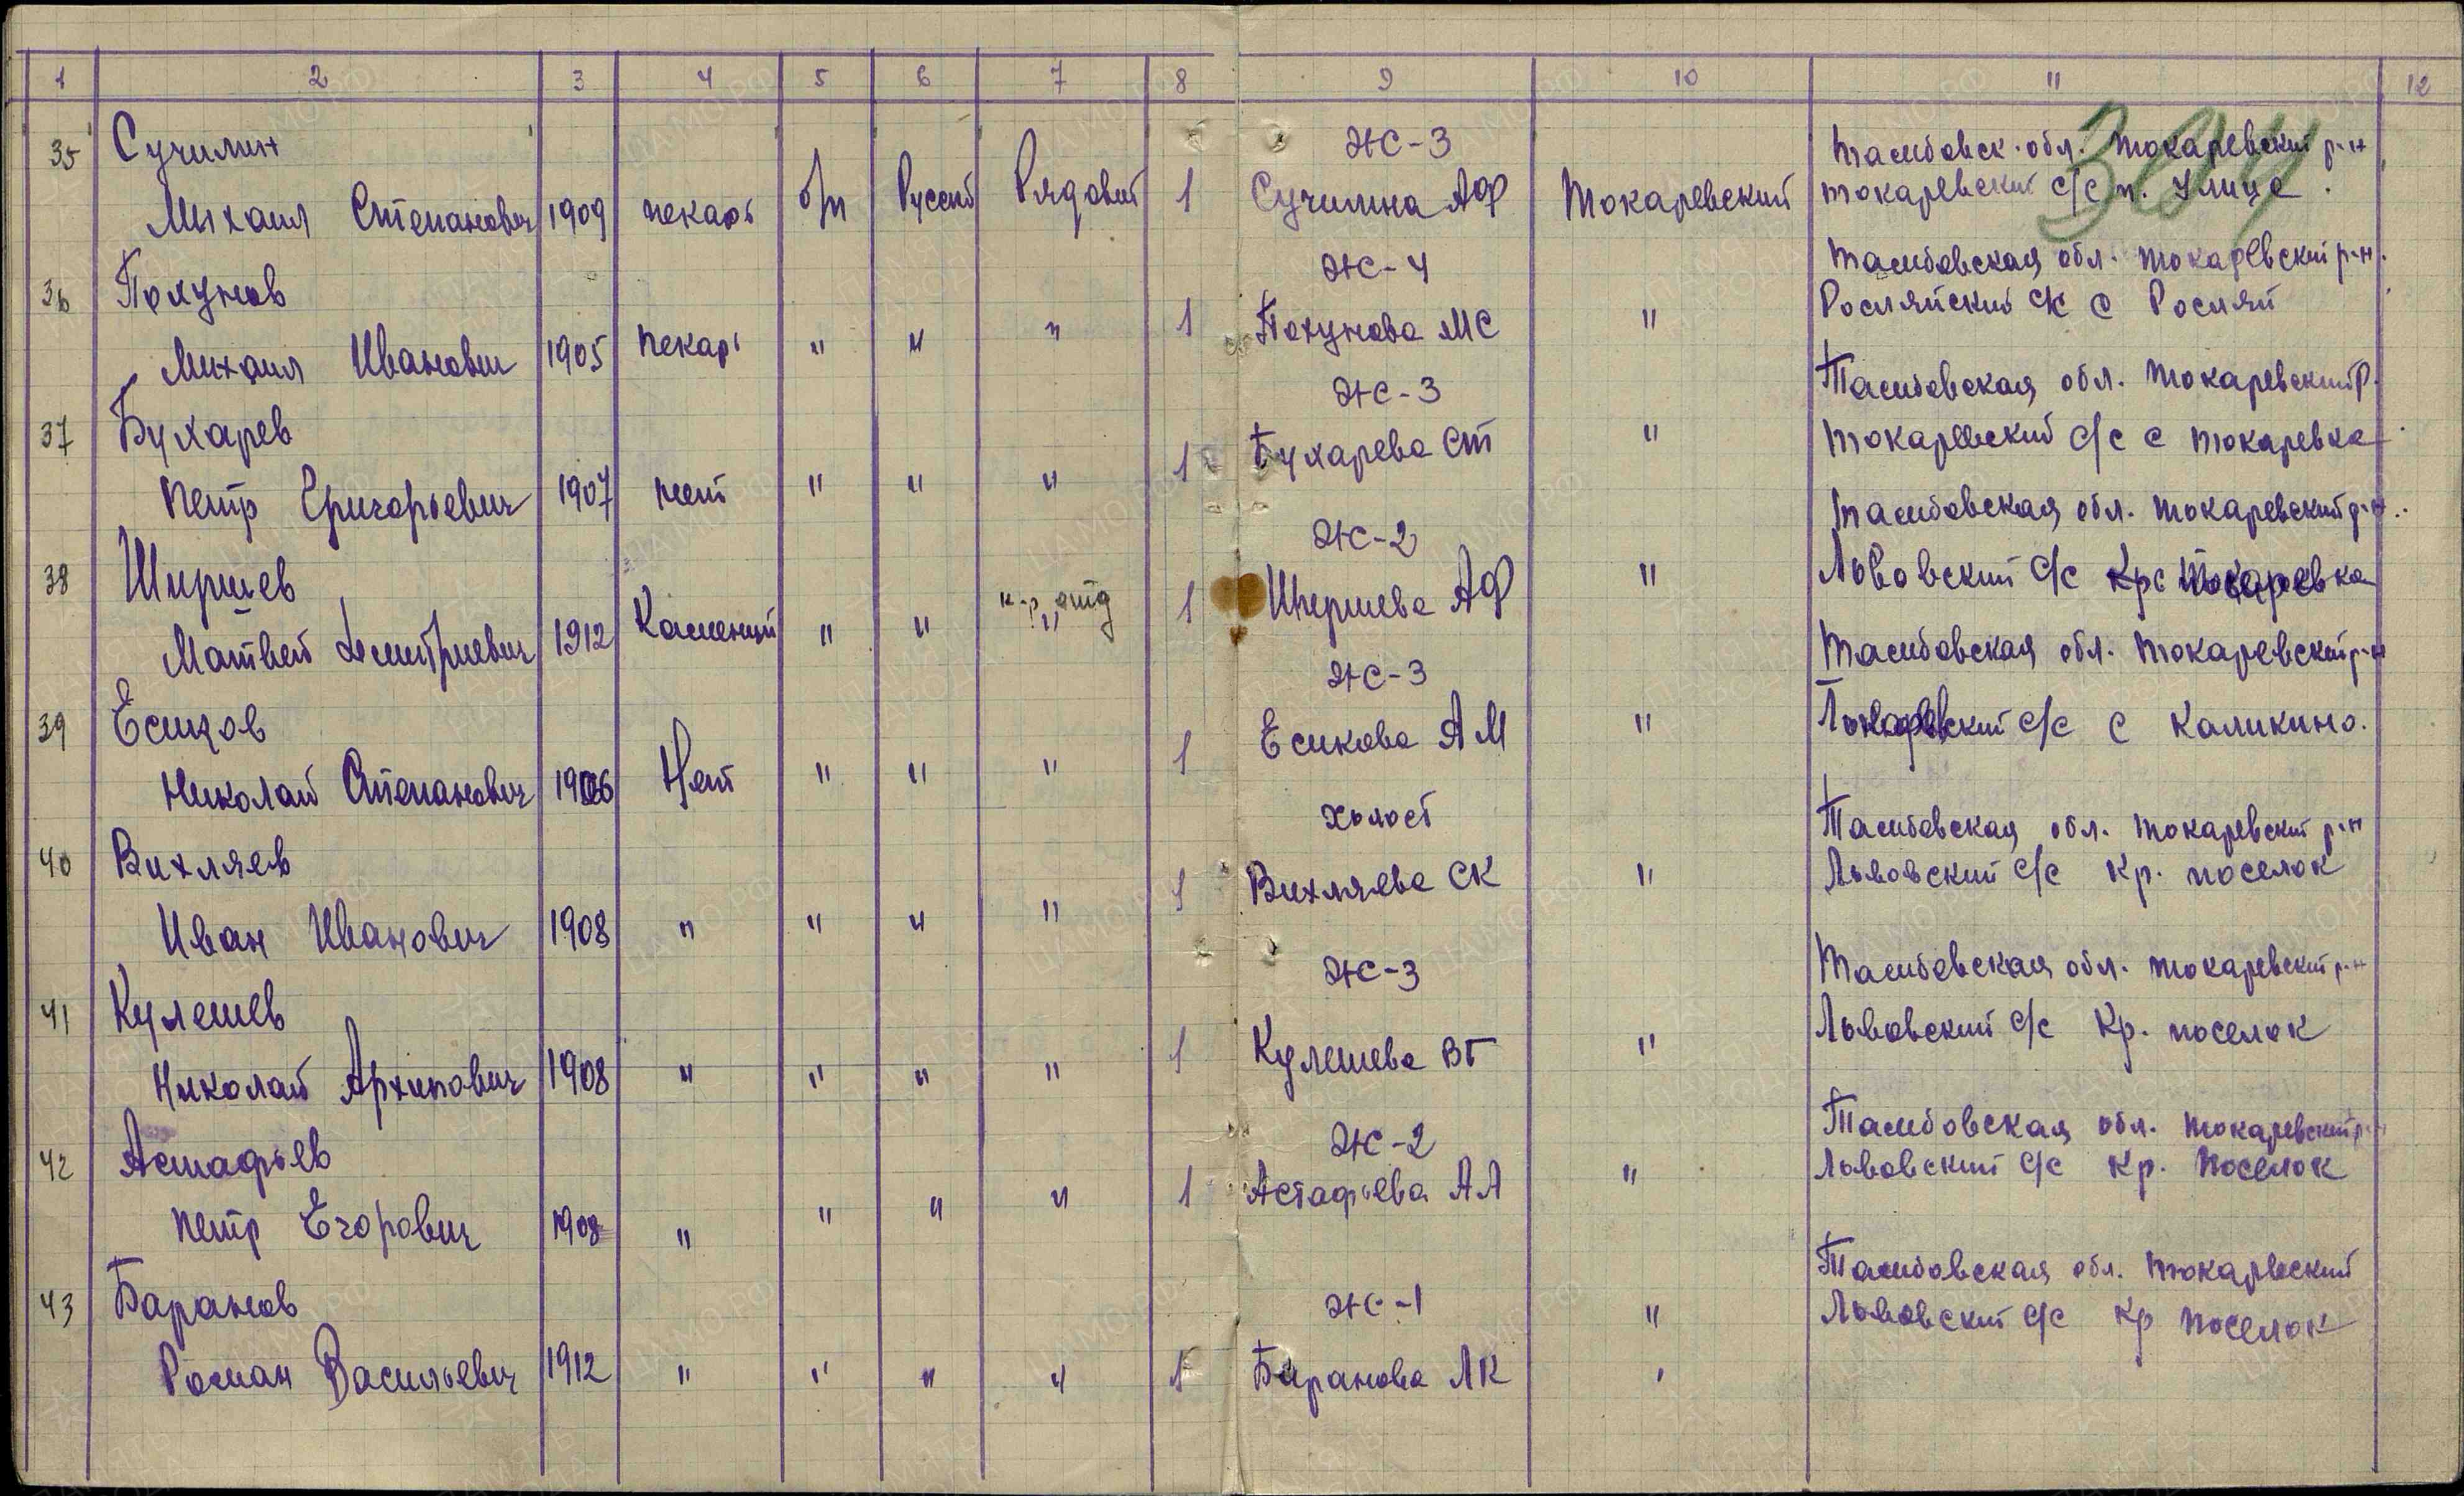 1 2 3 4 5 6 7 8 9 10 11 12
304
35 Сучилин ЖС-3 Тамбовск. обл. Токаревский р-н
Михаил Степанович 1909 пекарь б/п Русский Рядовой 1 Сучилина АФ Токаревский Токаревский с/с п. Улица
36 Полунов ЖС-4 Тамбовская обл. Токаревский р-н.
Михаил Иванович 1905 Пекарь " " " 1 Полунова МС " Росляйский с/с с Росляй
37 Бухарев ЖС-3 Тамбовская обл. Токаревский р.
Петр Григорьевич 1907 нет " " " 1 Бухарева СТ " Токаревский с/с с Токаревка
38 Ширшев ЖС-2 Тамбовская обл. Токаревский р-н.
Матвей Дмитриевич 1912 Каменщи " " к-р отд " 1 Ширшева АФ " Львовский с/с Крс Токаревка
39 Есиков ЖС-3 Тамбовская обл. Токаревский р-н
Николай Степанович 1906 Нет " " " 1 Есикова АМ " с/с с Каликино.
40 Вихляев Холост Тамбовская обл. Токаревский р-н
Иван Иванович 1908 " " " " 1 Вихляева СК " Львовский с/с Кр. поселок
41 Кулешев ЖС-3 Тамбовская обл. Токаревский р-н
Николай Архипович 1908 " " " " 1 Кулешева ВГ " Львовский с/с Кр. поселок
42 Астафьев ЖС-2 Тамбовская обл. Токаревский р-н
Петр Егорович 1908 " " " " 1 Астафьева АЛ " Львовский с/с Кр. Поселок
43 Баранов ЖС-1 Тамбовская обл. Токаревский
Роман Васильевич 1912 " " " " 1 Баранова ЛК " Львовский с/с Кр Поселок